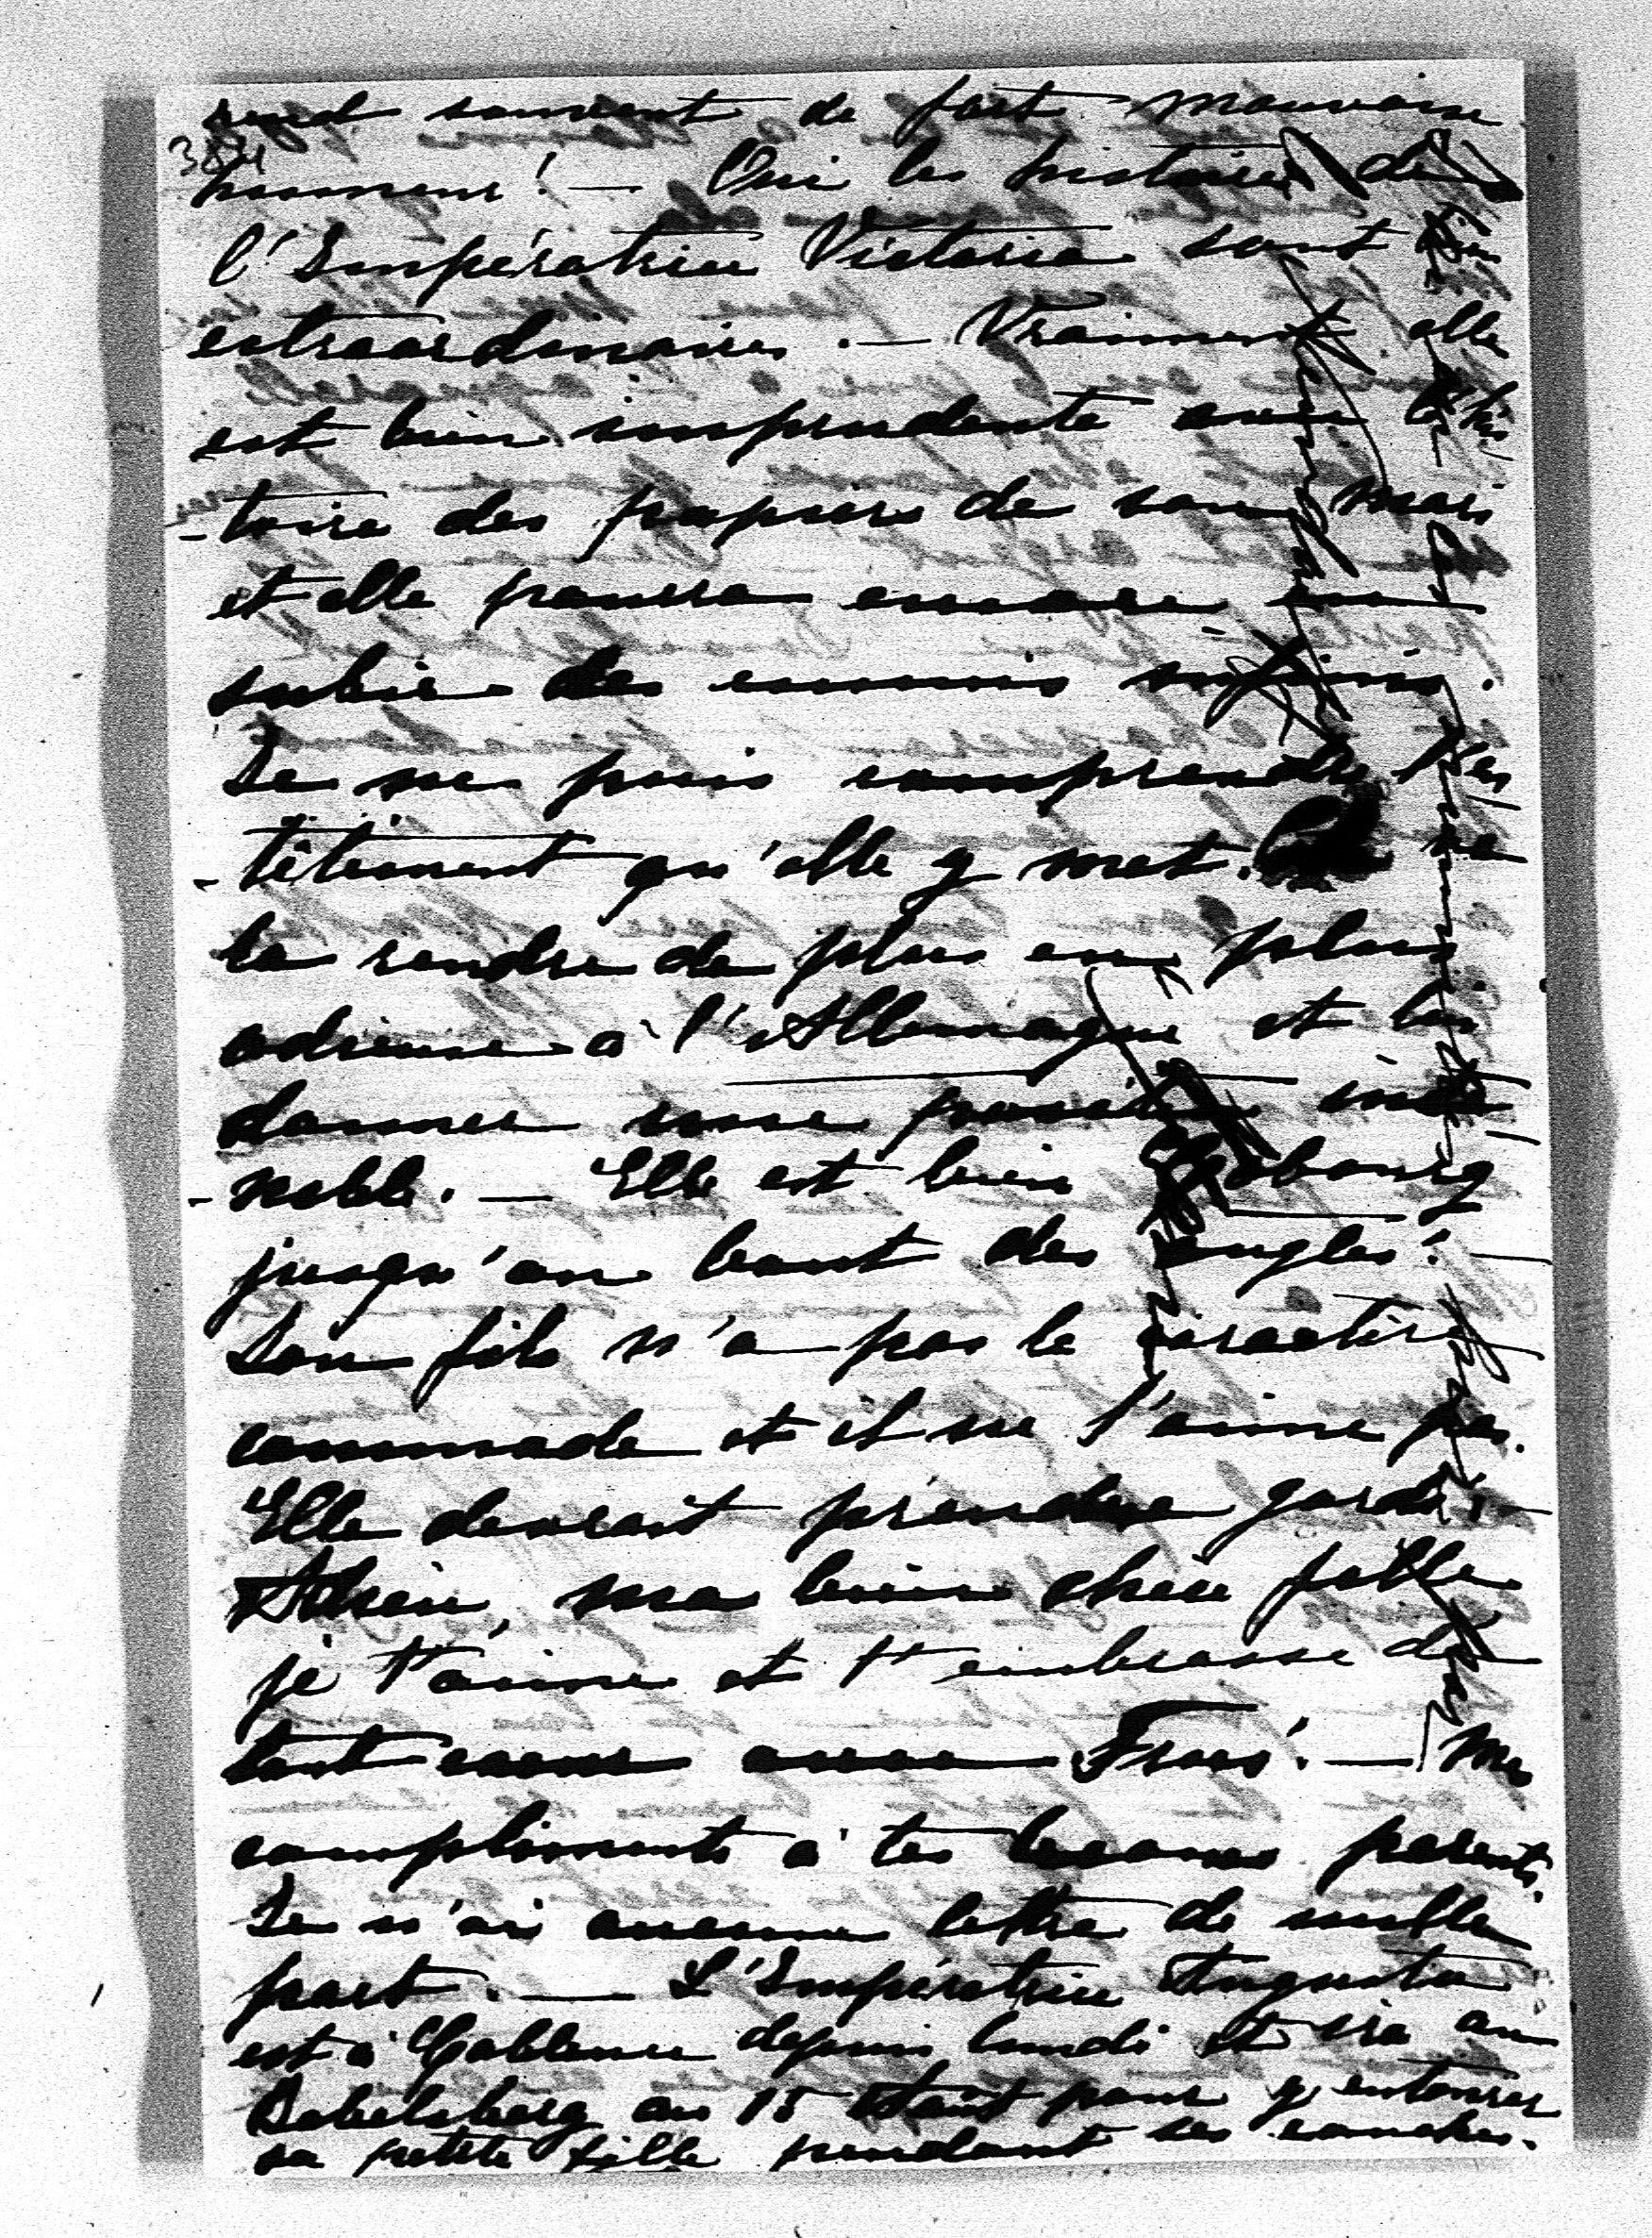 rend souvent de fort mauvaise
384
humeur! — Oui les histoires de
l'Impératrice Victoria sont
extraordinaires. — Vraiment elle
est bien imprudente avec l'his
-toire des papiers de son mari
et elle pourra encore en
subir des ennuis infinis.
Je ne puis comprendre l'en
-têtement qu'elle y met. Cela va
la rendre de plus en plus
odieuse à l'Allemagne et lui
donner une position into
-nable. — Elle est bien Cobourg
jusqu'au bout des ongles! —
Son fils n'a pas le caractère
commode et il ne l'aime pas.
Elle devrait prendre garde! —
Adieu, ma bien chère fille
je t'aime et t'embrasse de
tout coeur avec Fr. — Mes
compliments à tes beaux parents.
Je n'ai aucune lettre de nulle
part. — L'Impératrice Augusta
est à Coblence depuis lundi et ira au
Babelsberg au 15 Août pour y entourer
sa petite fille pendant ses couches.